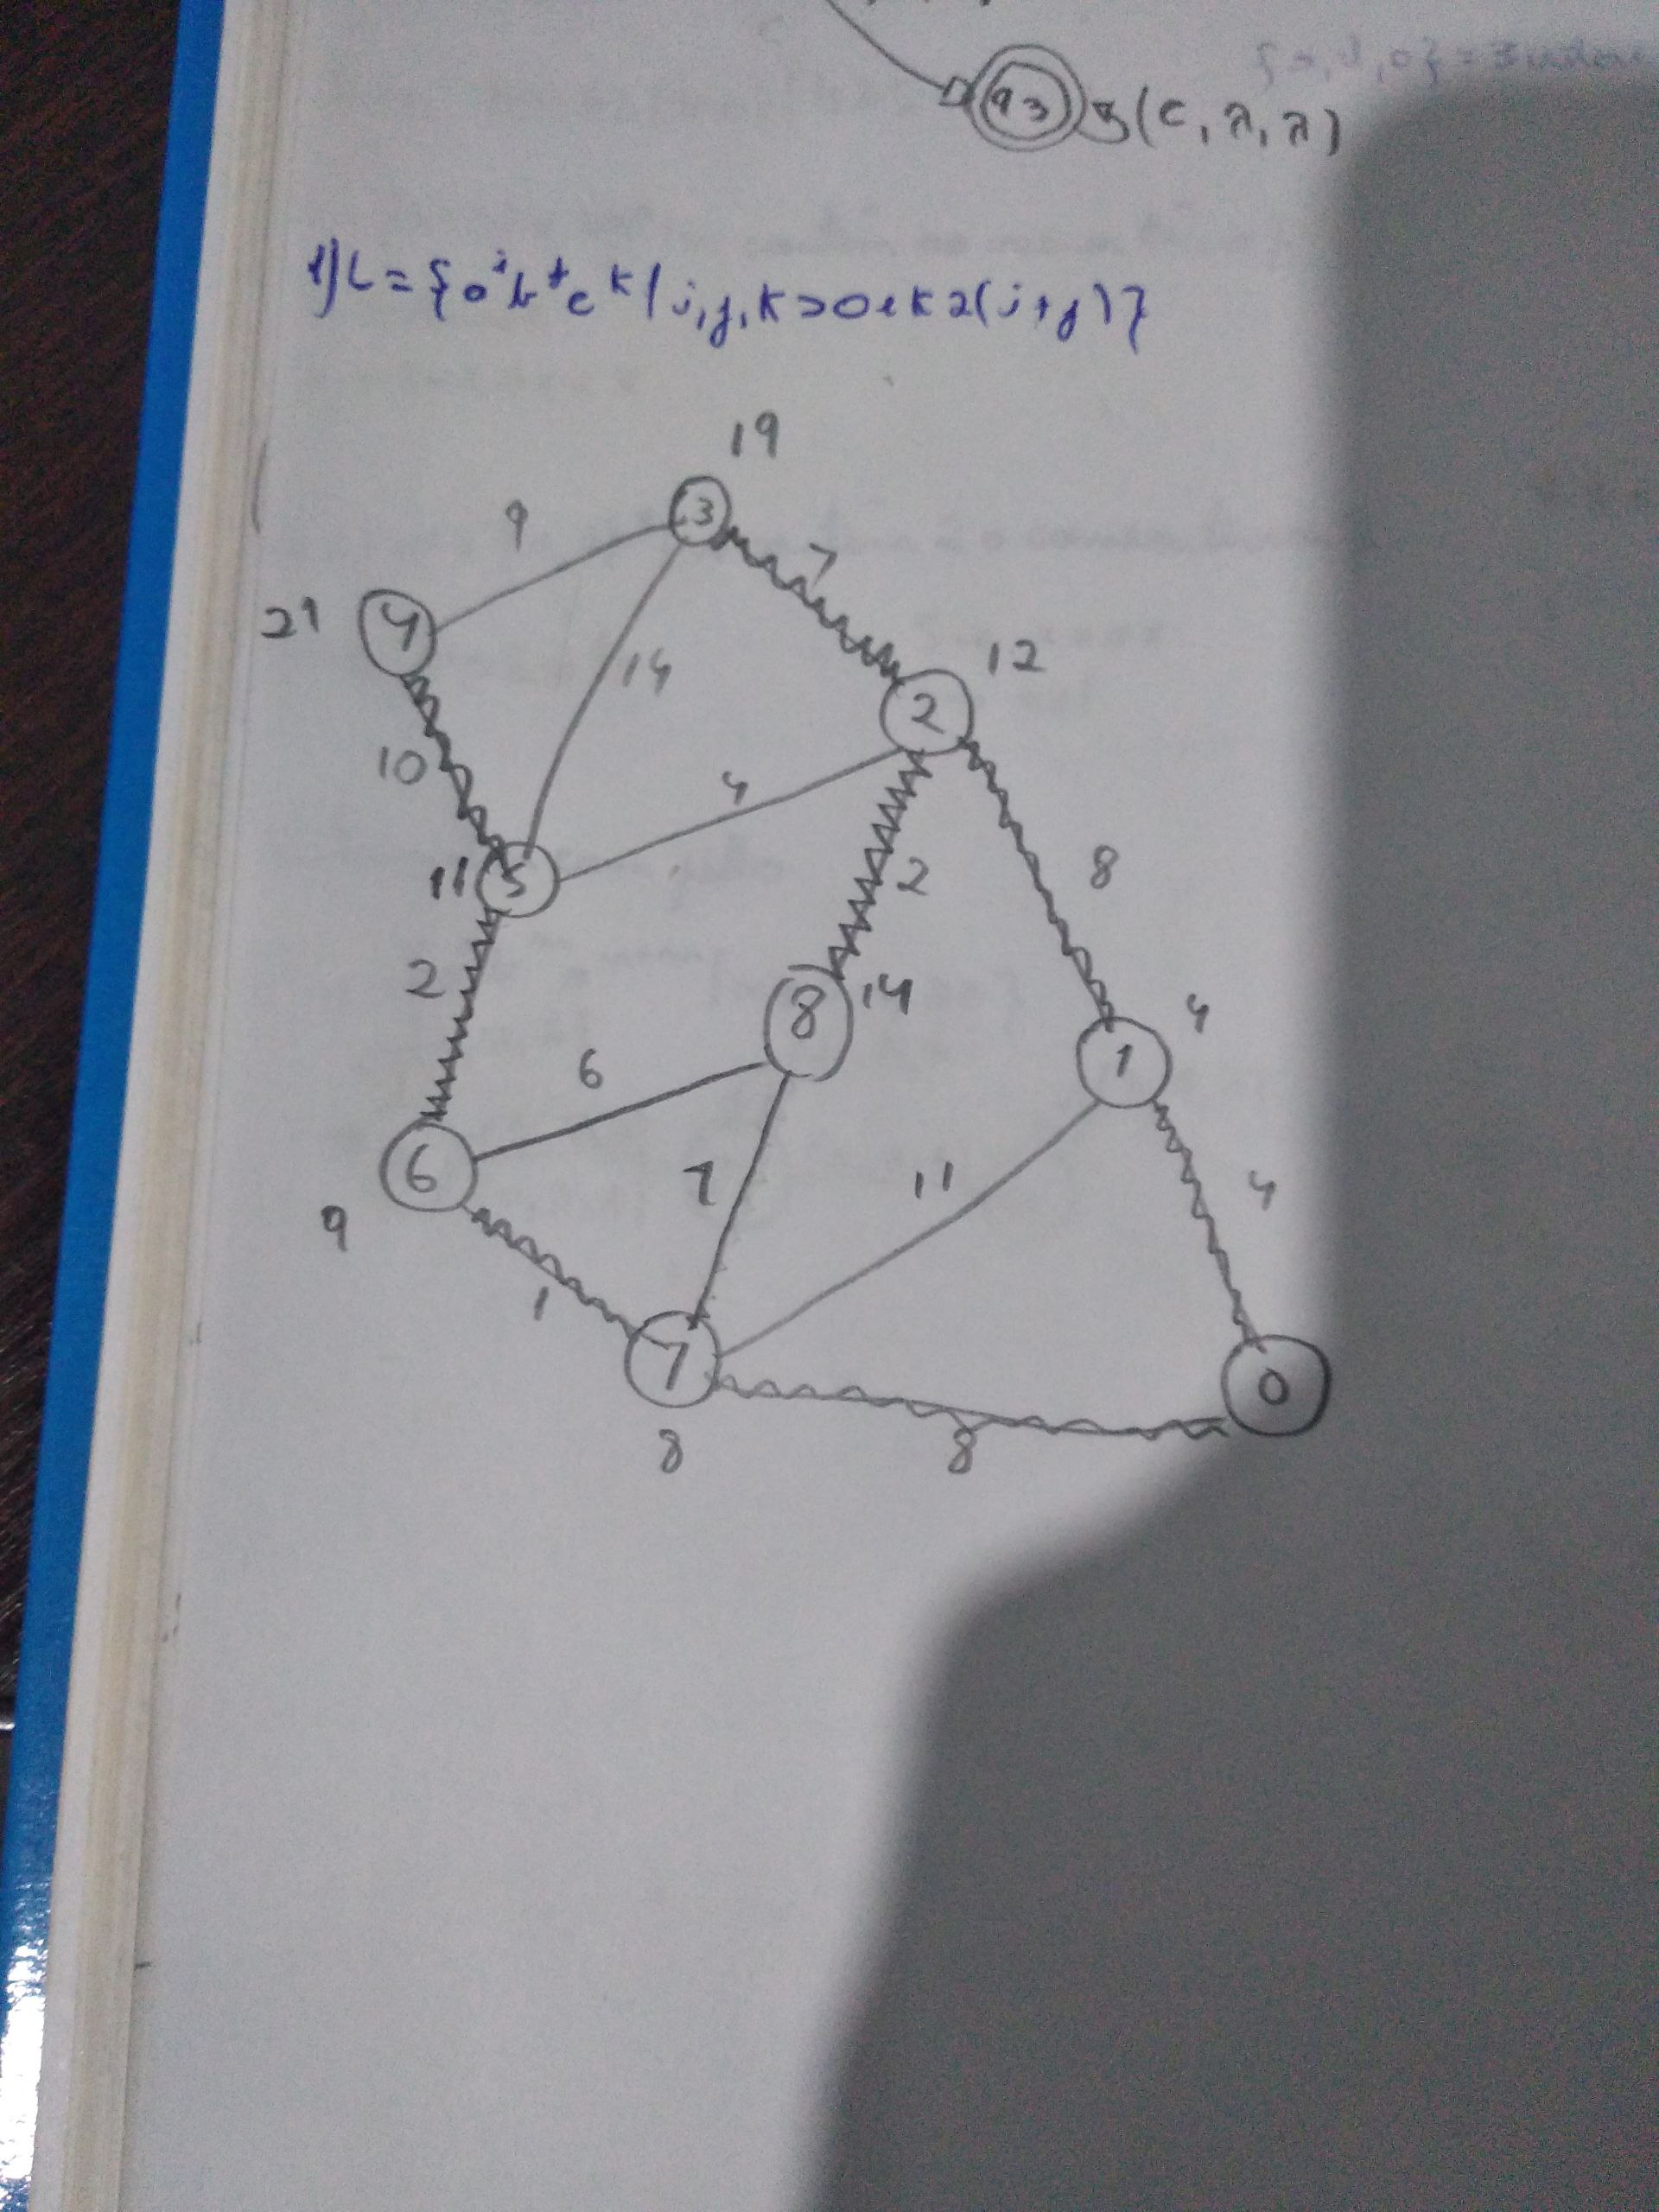 q3 (c, λ, λ)
1) L = {a^i b^j c^k / i, j, k > 0 e k 2(i+j)}
19
3
9
7
21
4
14
12
2
10
4
11
5
8
2
2
8
14
4
6
1
6
7
11
4
9
1
7
0
8
8